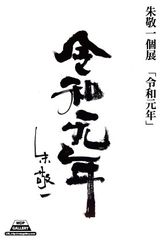 朱敬一個展「令和元年」
令和元年
朱敬一
MCP
GALLERY